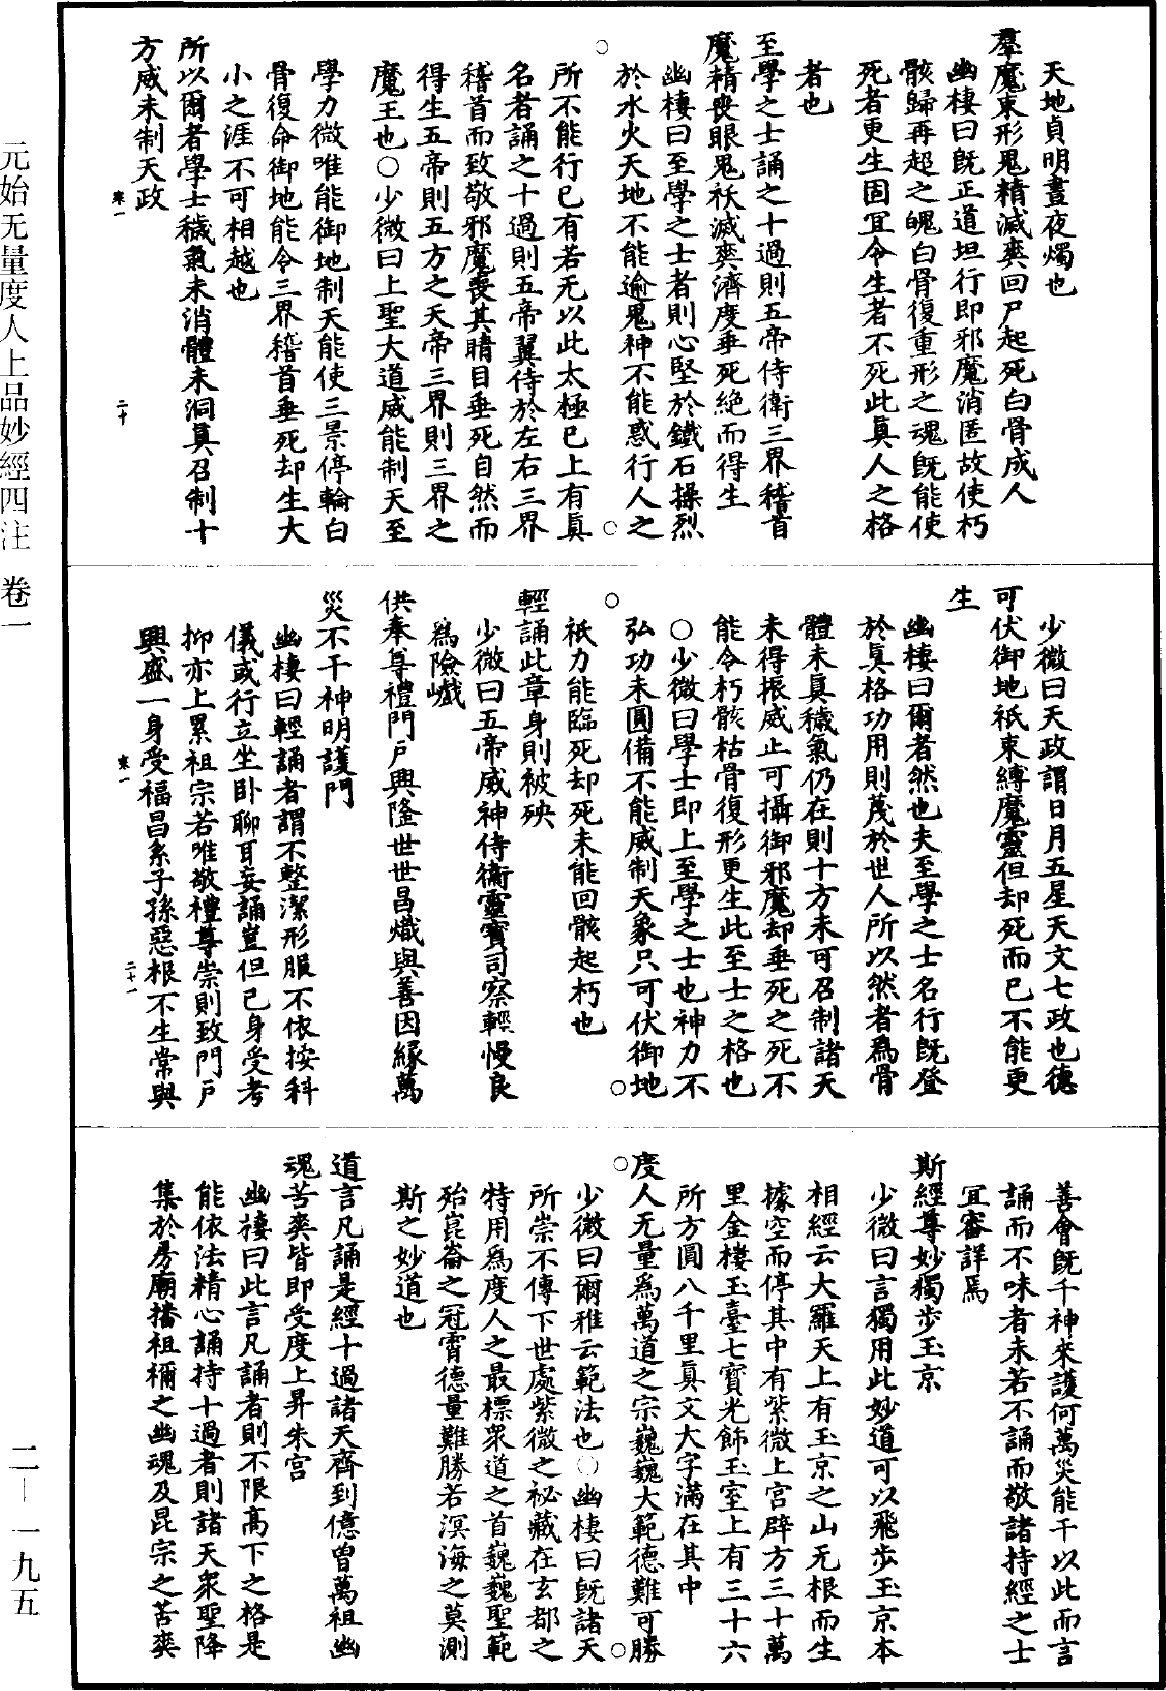 天地貞明晝夜燭也
羣魔束形鬼精滅爽回尸起死白骨成人
幽棲曰旣正道坦行即邪魔消匿故使朽
骸歸再起之魄白骨復重形之魂旣能使
死者更生固冝令生者不死此眞人之格
者也
至學之士誦之十過則五帝侍衛三界稽首
魔精喪眼鬼祅滅爽濟度垂死絶而得生
幽棲曰至學之士者則心堅於鐵石操烈
於水火天地不能逾鬼神不能惑行人之
所不能行已有若无以此太極已上有眞
名者誦之十過則五帝翼侍於左右三界
稽首而致敬邪魔喪其睛目垂死自然而
得生五帝則五方之天帝三界則三界之
魔王也○少微曰上聖大道威能制天至
學力微唯能御地制天能使三景停輪白
骨復命御地能令三界稽首垂死却生大
小之涯不可相越也
所以爾者學士穢氣未消體未洞眞召制十
方威未制天政
寒一 二十
少微曰天政謂日月五星天文七政也德
可伏御地祇束縛魔靈但却死而已不能更
生
幽棲曰爾者然也夫至學之士名行旣登
於眞格功用則茂於世人所以然者爲骨
體未眞穢氣仍在則十方未可召制諸天
未得振威止可攝御邪魔却垂死之死不
能令朽骸枯骨復形更生此至士之格也
○少微曰學士即上至學之士也神力不
弘功未圓備不能威制天象只可伏御地
祇力能臨死却死未能回骸起朽也
輕誦此章身則被殃
少微曰五帝威神侍衞靈寶司察輕慢良
爲險巇
供奉尊禮門戸興隆世世昌熾與善因緣萬
災不干神明護門
幽棲曰輕誦者謂不整潔形服不依按科
儀或行立坐卧聊耳妄誦豈但已身受考
抑亦上累祖宗若唯敬禮尊崇則致門戸
興盛一身受福昌系子孫惡根不生常與
寒一 二十一
善會旣千神來護何萬災能干以此而言
誦而不味者未若不誦而敬諸持經之士
冝審詳焉
斯經尊妙獨步玉京
少微曰言獨用此妙道可以飛步玉京本
相經云大羅天上有玉京之山无根而生
據空而停其中有紫微上宮辟方三十萬
里金樓玉臺七寶光飾玉室上有三十六
所方圓八千里眞文大字滿在其中
度人无量爲萬道之宗巍巍大範德難可勝
少微曰爾雅云範法也○幽棲曰旣諸天
所崇不傳下世處紫微之祕藏在玄都之
特用爲度人之最標衆道之首巍巍聖範
殆崑崙之冠霄德量難勝若溟海之莫測
斯之妙道也
道言凡誦是經十過諸天齊到億曾萬祖幽
魂苦爽皆即受度上昇朱宮
幽棲曰此言凡誦者則不限高下之格是
能依法精心誦持十過者則諸天衆聖降
集於房廟播祖禰之幽魂及昆宗之苦爽
元始无量度人上品妙經四注 卷一
二—一九五